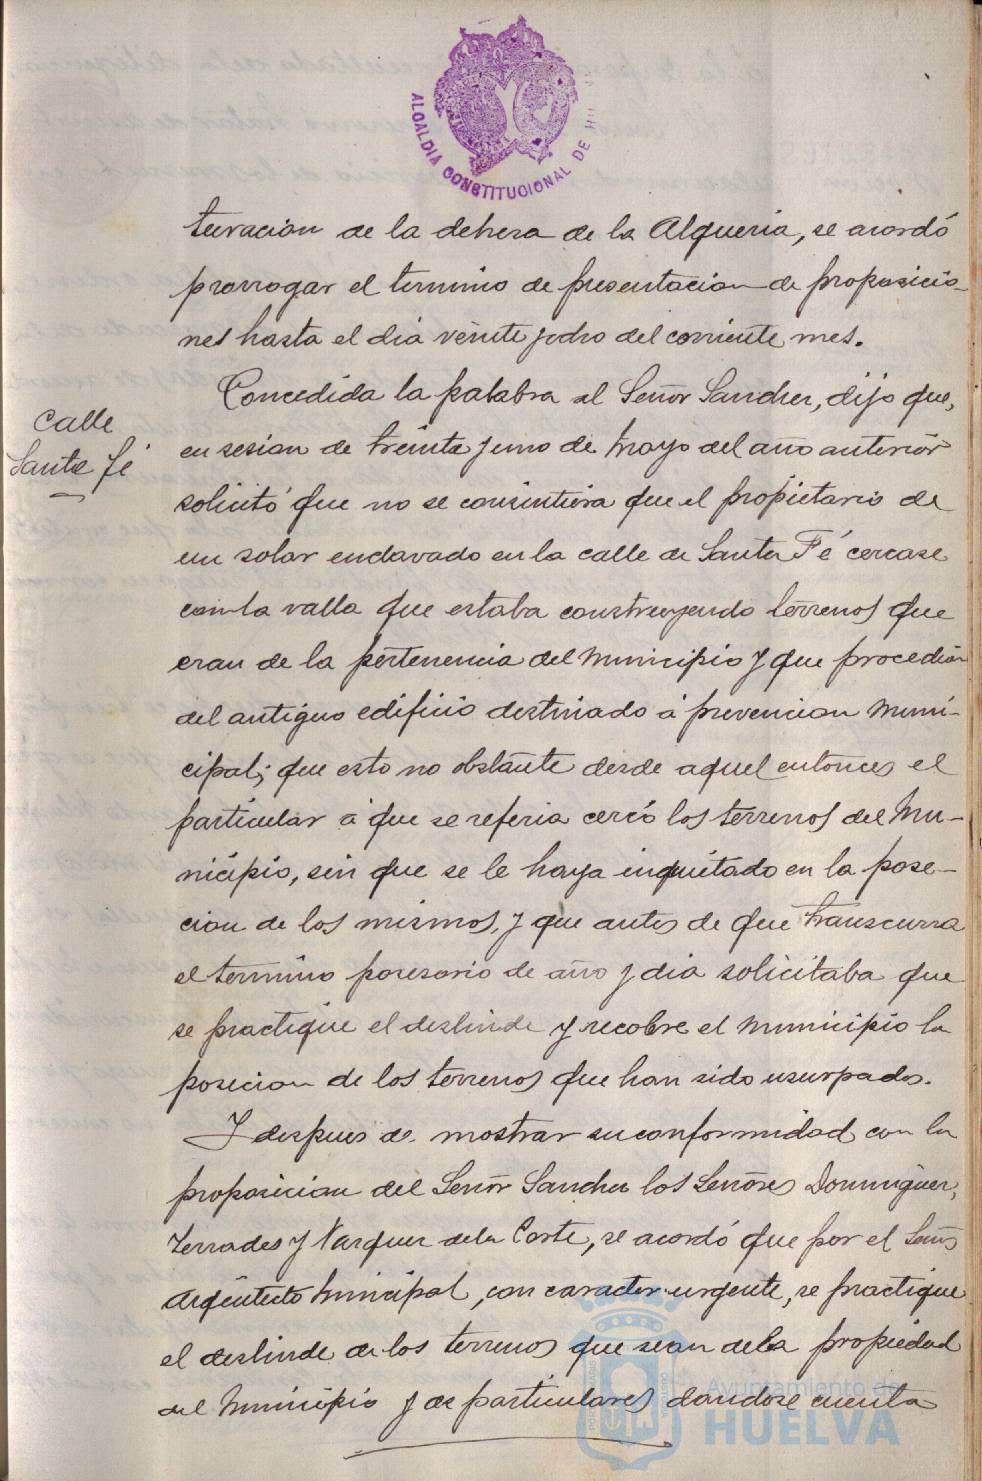 ALCALDIA CONSTITUCIONAL DE
turacion de la dehesa de la Alqueria, se acordó
prorrogar el termino de presentacion de proposicio-
nes hasta el dia veinte y ocho del corriente mes.
Calle
Santa Fé
Concedida la palabra al Señor Sanchez, dijo que,
en sesion de treinta y uno de Mayo del año anterior
solicitó que no se consintiera que el propietario de
un solar enclavado en la calle de Santa Fé cercase
con la valla que estaba construyendo terrenos que
eran de la pertenencia del Municipio y que procedian
del antiguo edificio destinado á prevencion Muni-
cipal; que esto no obstante desde aquel entonces el
particular á que se referia cercó los terrenos del Mu-
nicipio, sin que se le haya inquietado en la pose-
cion de los mismos, y que antes de que transcurra
el termino posesorio de año y dia solicitaba que
se practique el deslinde y recobre el Municipio la
posecion de los terrenos que han sido usurpados.
Y despues de mostrar su conformidad con la
proposicion del Señor Sanchez los Señores Dominguez,
Terrades y Vazquez de la Corte, se acordó que por el Señor
Arquitecto Municipal, con caracter urgente, se practique
el deslinde de los terrenos que sean de la propiedad
del Municipio y de particulares dandose cuenta
Ayuntamiento de
HUELVA